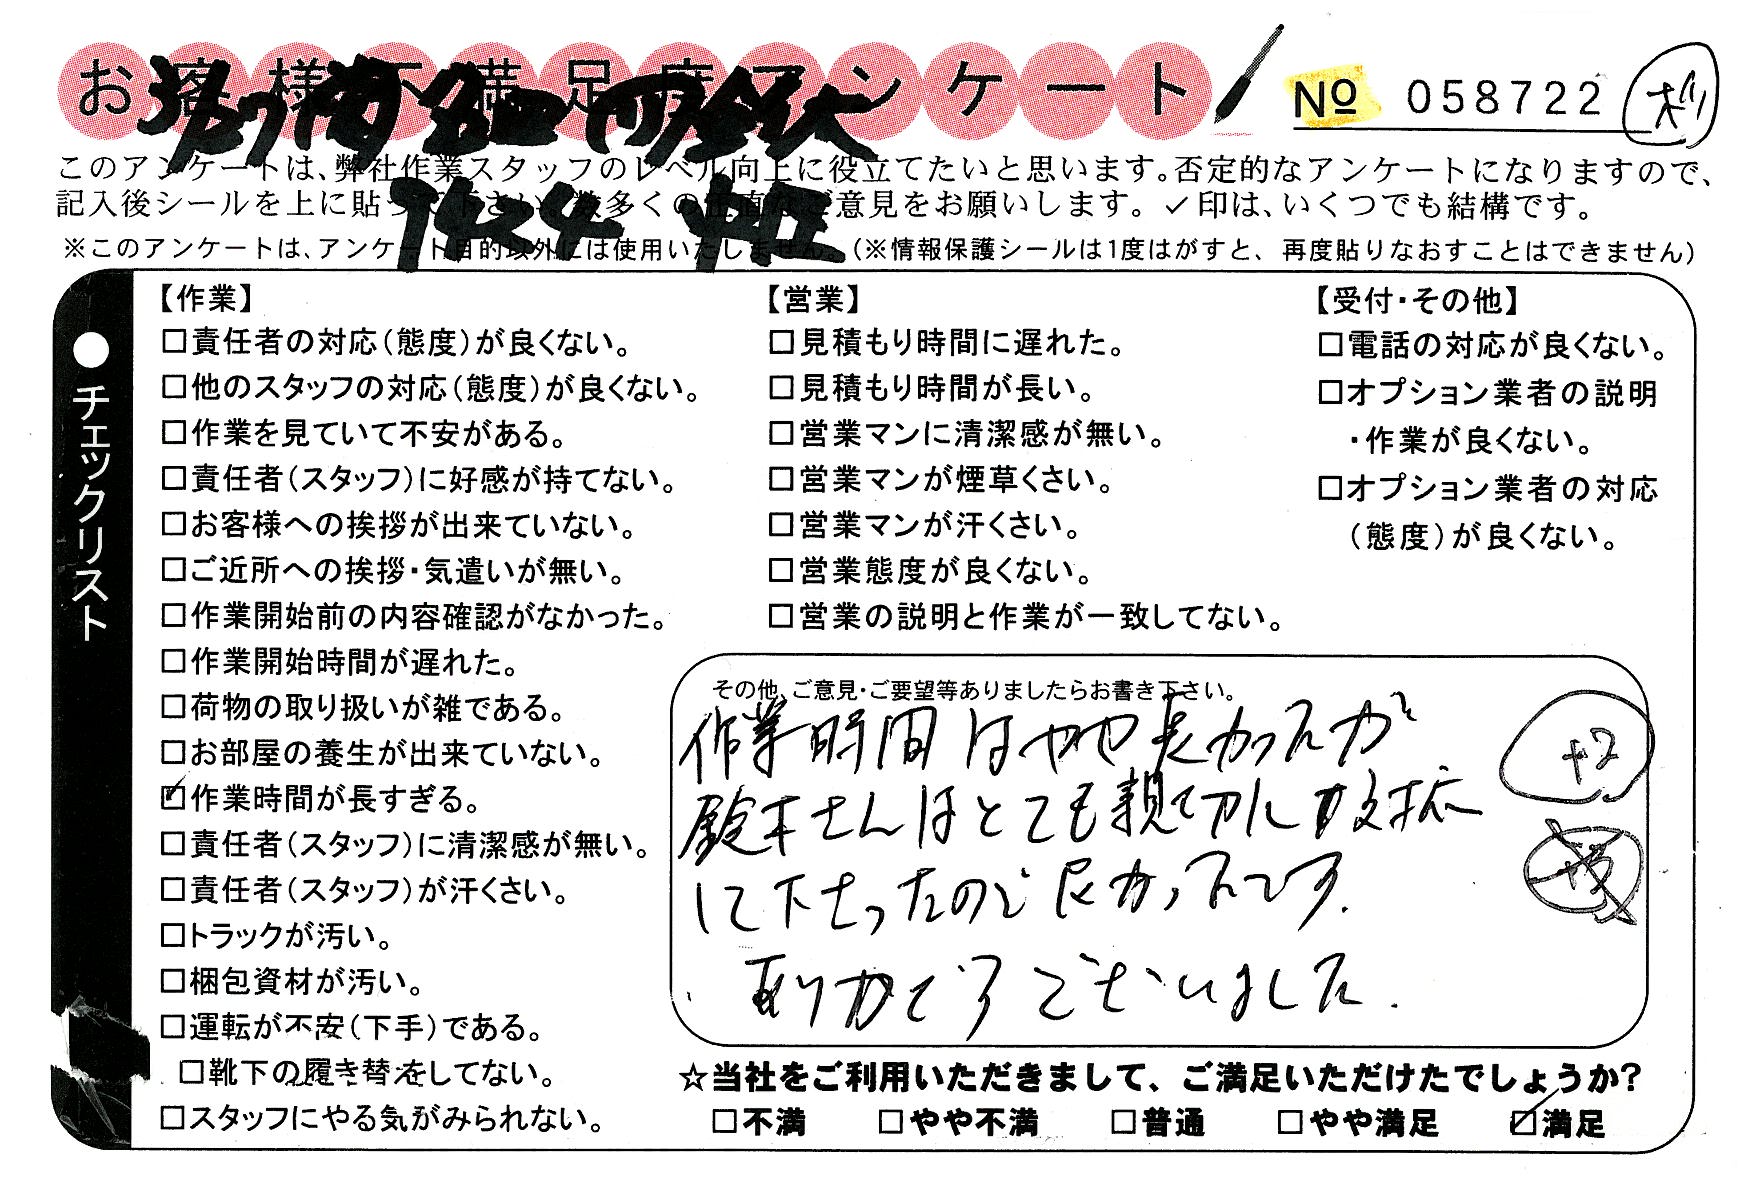 お客様不満足度アンケート
№ 058722
このアンケートは、弊社作業スタッフのレベル向上に役立てたいと思います。否定的なアンケートになりますので、
記入後シールを上に貼って下さい。数多くの正直なご意見をお願いします。✓印は、いくつでも結構です。
※このアンケートは、アンケート目的以外には使用いたしません。(※情報保護シールは1度はがすと、再度貼りなおすことはできません)
●チェックリスト
【作業】
□責任者の対応(態度)が良くない。
□他のスタッフの対応(態度)が良くない。
□作業を見ていて不安がある。
□責任者(スタッフ)に好感が持てない。
□お客様への挨拶が出来ていない。
□ご近所への挨拶・気遣いが無い。
□作業開始前の内容確認がなかった。
□作業開始時間が遅れた。
□荷物の取り扱いが雑である。
□お部屋の養生が出来ていない。
☑作業時間が長すぎる。
□責任者(スタッフ)に清潔感が無い。
□責任者(スタッフ)が汗くさい。
□トラックが汚い。
□梱包資材が汚い。
□運転が不安(下手)である。
□靴下の履き替えをしてない。
□スタッフにやる気がみられない。
【営業】
□見積もり時間に遅れた。
□見積もり時間が長い。
□営業マンに清潔感が無い。
□営業マンが煙草くさい。
□営業マンが汗くさい。
□営業態度が良くない。
□営業の説明と作業が一致してない。
【受付・その他】
□電話の対応が良くない。
□オプション業者の説明
・作業が良くない。
□オプション業者の対応
(態度)が良くない。
その他、ご意見・ご要望等ありましたらお書き下さい。
作業時間はやや長かったが
鈴木さんはとても親切に対応
して下さったので良かったです.
ありがとうございました.
+2
☆当社をご利用いただきまして、ご満足いただけたでしょうか?
□不満 □やや不満 □普通 □やや満足 ☑満足